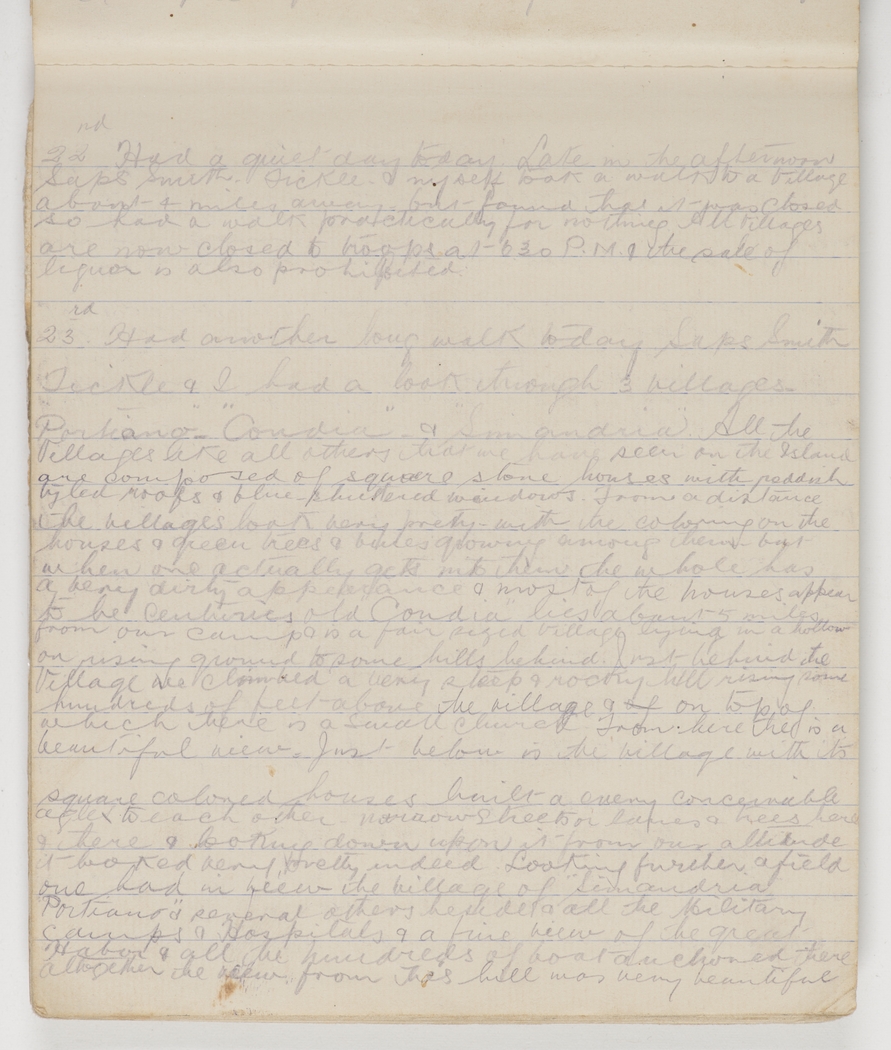 22nd Had a quiet day today. Late in the afternoon
Saps Smith. Tickle. & myself took a walk to a Village
about 4 miles away. but found that it was closed
so had a walk practically for nothing. All Villages
are now closed to troops at 630 P.M. & the sale of
liquor is also prohibited.
23rd. Had another long walk today Saps Smith
Tickle & I had a look through 3 villages.
"Portiano" - "Condia" - & "Simandria". All the
Villages like all others that we have seen on the Island
are composed of square stone houses with reddish
tyled roofs & blue shuttered windows. From a distance
the villages look very pretty - with the coloring on the
houses & green trees & vines growing among them - but
when one actually gets into them the whole has
a very dirty appearance & most of the houses appear
to be centuries old "Condia" lies about 5 miles
from our camp & is a fair sized Village lying in a hollow
on rising ground to some hills behind. Just behind the
Village we climbed a very steep & rocky hill rising some
hundreds of feet above the village & on top of
which there is a small church From here ther is a
beautiful view. Just below is the village with its
square colored houses built a every conceivable
agle to each other - narrow streets or lanes & trees here
& there & looking down upon it from our altitude
it looked very pretty indeed Looking further afield
one had in view the village of "Simandria
"Portiano" & several others besides & all the Military
camps & Hospitals & a fine view of the great
Habor & all the hundreds of boats anchored there
altogether the view from this hill was very beautiful